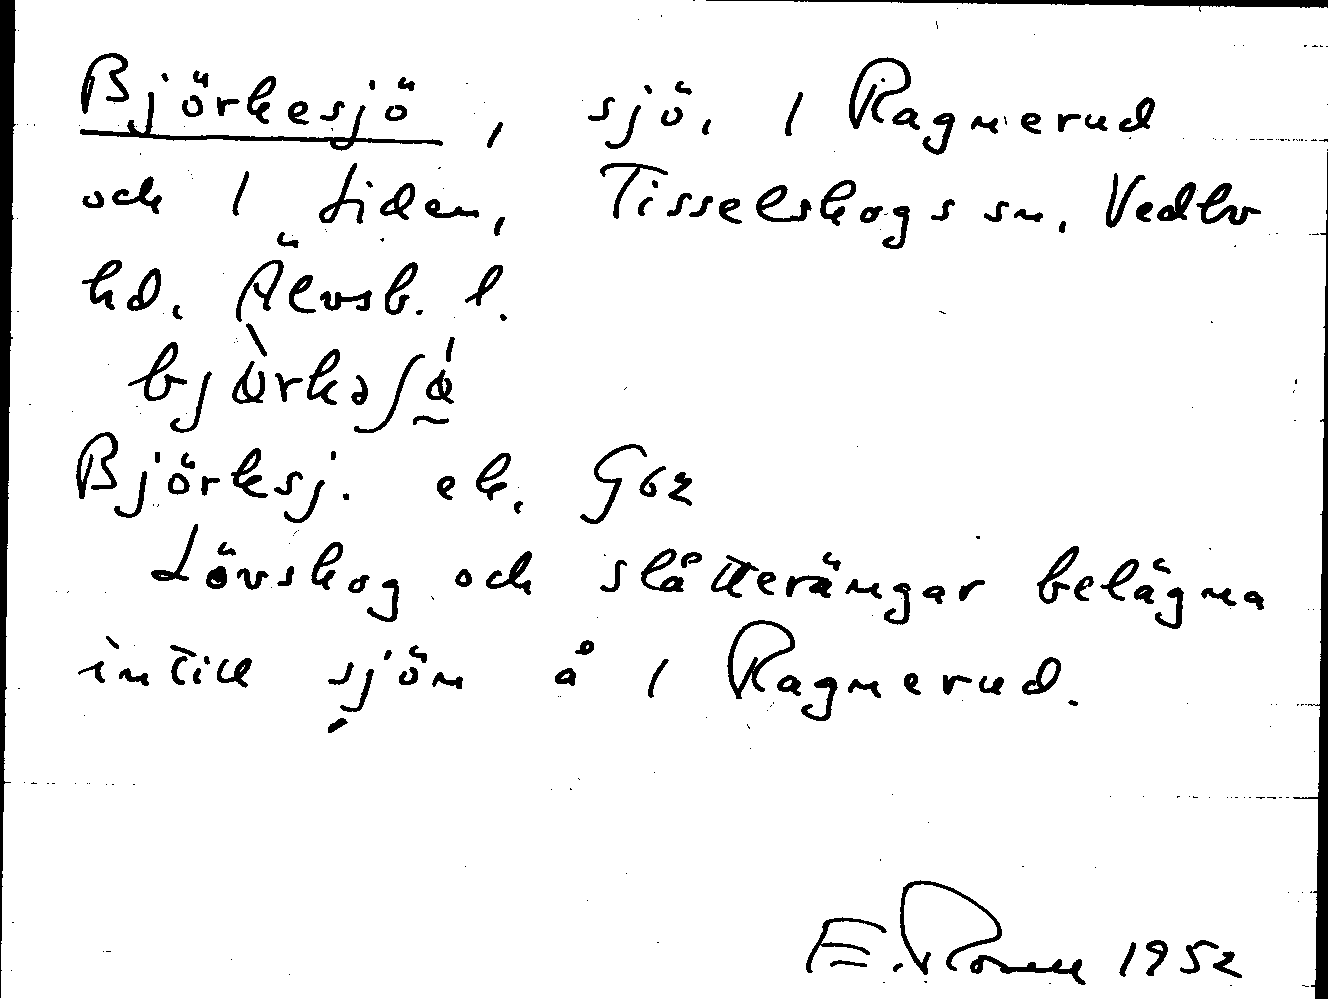 Björkesjö, sjö, 1 Ragnerud
och 1 Liden, Tisselskogs sn, Vedbo
hd, Älvsb. l.
Björksj. ek. G62
Lövskog och slåtterängar belägna
intill sjön å 1 Ragnerud.
E. 1952